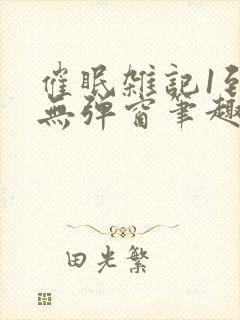 催眠雑記1至
無弹窗筆趣
田光繁